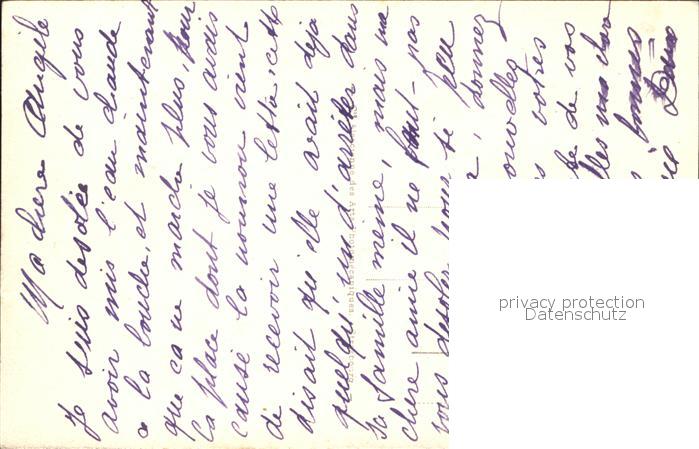 Ma chere Angèle
Je suis desolée de vous
avoir mis l'eau chaude
a la bouche, et maintenant
que ça ne marche plus, pour
la place dont je vous avais
causé la nounou vient
de recevoir une lettre, cette
disait qu'elle avait deja
quelqu'un d'arrêter dans
sa famille meme, mais ma
chere amie il ne faut pas
vous desoler pour si peu
donnez
nouvelles
votres
de de vos
lles
bonnes
privacy protection
Datenschutz